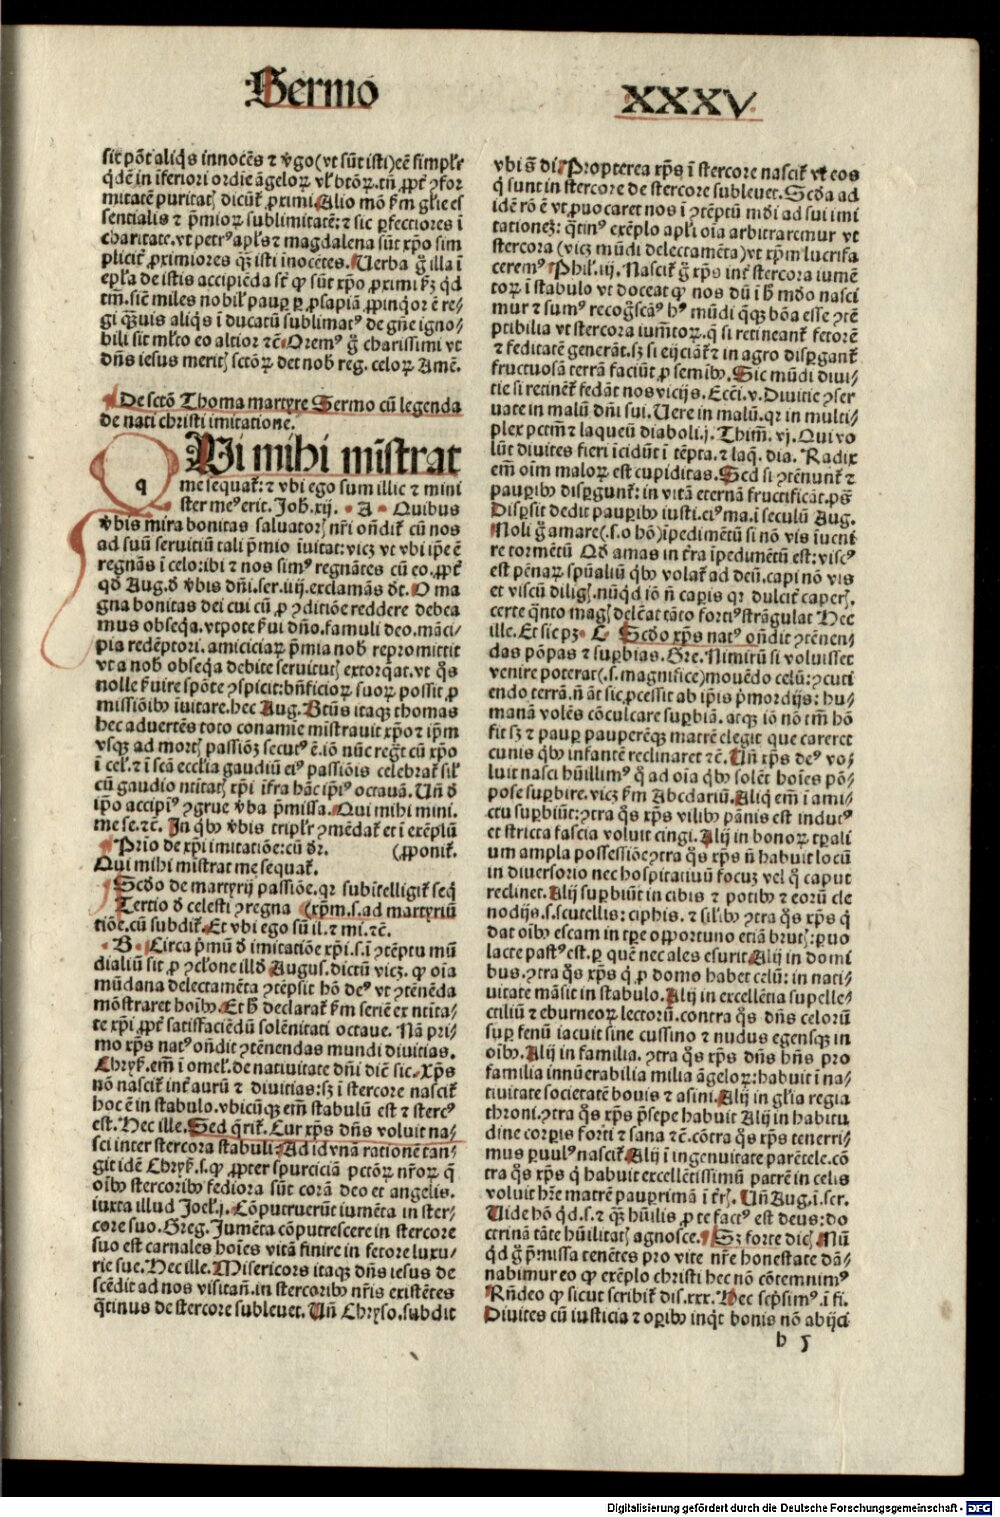 Sermo XXXV
sit põt aliq̃s innocẽs ⁊ v̾go (vt sũt isti) eẽ simpl'r
q̃dẽ in ĩferiori ordĩe ãgeloꝝ vl' btõꝝ. tñ ꝓpt̾ ↄ̃for
mitatẽ puritat̾ dicũt̾ ꝓximi. Alio mõ ẜm gl'ie es
sentialis ⁊ p̃mioꝝ sublimitatẽ: ⁊ sic ꝑfectiores ĩ
charitate. vt petr⁹ apl's ⁊ magdalena sũt xp̃o sim
plicit̾ ꝓximiores q̃ꝫ isti inocẽtes. Uerba g̃ illa ĩ
ep̃la de istis accipiẽda st̾ ꝙ sũt xp̃o ꝓximi ẜꝫ qd̃
tm̃. sicũ miles nobil' paup̱ ꝑ ꝓsapiã ꝓpinqor ẽ re/
gi q̃ꝫuis aliq̃s ĩ ducatũ sublimat⁹ de gñe igno/
bili sit ml'to eo altior ⁊c̃. Orem⁹ g̃ charissimi vt
dñs iesus merit̾ sctõꝝ det nob̃ reg. celoꝝ Amẽ.
De sctõ Thoma martyre Sermo cũ legenda
de nati christi imitatione.
QUi mihi mĩstrat
q me sequat̾: ⁊ vbi ego sum illic ⁊ mini
ster me⁹ erit. Joh. xij. A Quibus
v̾bis mira bonitas saluator̾ nr̃i oñdit̾ cũ nos
ad suũ seruitiũ tali p̃mio ĩuitat: vicꝫ vt vbi ip̃e ẽ
regnãs ĩ celo: ibi ⁊ nos sim⁹ regnãtes cũ eo. ꝓpt̾
qd̃ Aug. d̾ v̾bis dñi. ser. iiij. exclamãs dt̾. O ma
gna bonitas dei cui cũ ꝓ ↄ̃ditiõe reddere debea
mus obseq̃a. vtpote ẜui dño. famuli deo. mãci/
pia redẽptori. amici ciaꝝ p̃mia nob̃ repromittit
vt a nob̃ obseq̃a debite seruitut̾ extorq̃at. vt q̃s
nolle ẜuire spõte ↄ̃spicit: bñficioꝝ suoꝝ possit ꝓ
missiõibꝰ ĩuitare. hec Aug. Btũs itaqꝫ thomas
hec aduertẽs toto conamĩe mĩstrauit xp̃o ⁊ ip̃m
vsqꝫ ad mort̾ passiõꝫ secut⁹ ẽ. iõ nũc regt̾ cũ xp̃o
ĩ cel. ⁊ ĩ scã eccl'ia gaudiũ ei⁹ passiõis celebrat̾ sil'
cũ gaudio ntitat̾ xp̃i ĩfra hãc ip̃i⁹ octauã. Uñ d̾
ip̃o accipi⁹ ↄ̃grue v̾ba p̃missa. Qui mihi mini.
me se. ⁊c̃. In q̃bꝰ v̾bis tripl'r ↄ̃mẽdat̾ et ĩ exẽplũ
Prio de xp̃i imitatiõe: cũ dr̃. (ꝓponit̾.
Qui mihi mĩstrat me sequat̾.
Scd̾o de martyrij passiõe. qr subĩtelligit̾ seq̃
Tertio d̾ celesti ↄ̃regna (xp̃m. s. ad martyriũ
tiõe. cũ subdit̾. Et vbi ego sũ il. ⁊ mi. ⁊c̃.
B. Circa p̃mũ d̾ imitatiõe xp̃i. s. ĩ ↄ̃tẽptu mũ
dialiũ sit ꝓ ↄ̃cl'one illd̾ Augus. dictũ vicꝫ. ꝙ oĩa
mũdana delectamẽta ↄ̃tẽpsit hõ de⁹ vt ↄ̃tẽnẽda
mõstraret hoĩbꝰ. Et h̾ declarat̾ ẜm seriẽ ex ntita/
te xp̃i ꝓpt̾ satisfaciẽdũ solẽnitati octaue. Nã pri/
mo xp̃s nat⁹ oñdit ↄ̃tẽnendas mundi diuitias.
Chryẜ. em̃ ĩ omel'. de natiuitate dñi dicit sic. Xp̃s
nõ nascit̾ int̾ aurũ ⁊ diuitias: sꝫ ĩ stercore nascit̾
hoc ẽ in stabulo. vbicũqꝫ em̃ stabulũ est ⁊ sterc⁹
est. Hec ille. Sed q̃rit̾. Cur xp̃s dñs voluit na/
sci inter stercora stabuli: Ad id vnã rationẽ tan/
git idẽ Chryẜ. s. ꝙ ꝓpter spurciciã pctõꝝ nr̃oꝝ q̃
oĩbꝰ stercoribꝰ fediora sũt corã deo et angelis.
iuxta illud Joel'. j. Cõputruerũt iumẽta in ster/
core suo. Greg. Jumẽta cõputrescere in stercore
suo est carnales hoĩes vitã finire in fetore luxu/
rie sue. Hec ille. Misericors itaqꝫ dñs iesus de
scẽdit ad nos visitan. in stercoribꝰ nr̃is existẽtes
q̃tinus de stercore subleuet. Uñ Chryso. subdit
vbi s̃ di. Propterea xp̃s ĩ stercore nascit̾ vt eos
q̃ sunt in stercore de stercore subleuet. Scd̾a ad
idẽ rõ ẽ vt ꝓuocaret nos ĩ ↄ̃tẽptũ mũdi ad sui imi
tationeꝫ: q̃tin⁹ exẽplo apl'i oĩa arbitraremur vt
stercora (vicꝫ mũdi delectamẽta) vt xp̃m lucrifa
cerem⁹ Phil'. iij. Nascit̾ g̃ xp̃s int̾ stercora iumẽ
toꝝ ĩ stabulo vt doceat ꝙ nos dũ ĩ h̾ mũdo nasci
mur ⁊ sum⁹ recog̃scam⁹ h⁹ mũdi q̃qꝫ bõa esse ↄ̃tẽ
ptibilia vt stercora iumt̃oꝝ. q̃ si retineant̾ fetorẽ
⁊ feditatẽ generãt. sꝫ si eijciãt̾ ⁊ in agro disꝑgant̾
fructuosã terrã faciũt ꝓ semĩbꝰ. Sic mũdi diui/
tie si retinet̾ fedãt nos vicijs. Ecci. v. Diuitie ↄ̃ser
uate in malũ dñi sui. Uere in malũ. qr in multi/
plex pctm̃ ⁊ laqueũ diaboli. j. Thim̃. vj. Qui vo
lũt diuites fieri ĩcidũt ĩ tẽpta. ⁊ laq̃. dia. Radix
em̃ oĩm maloꝝ est cupiditas. Sed si ↄ̃tẽnunt̾ ⁊
pauꝑibꝰ disꝑgunt̾: in vitã eternã fructificãt. ps̃.
Disꝑsit dedit pauꝑibꝰ iusti. ei⁹ ma. ĩ seculũ Aug.
Noli g̃ amare (. s. o hõ) ĩpedimẽtũ si nõ vis ĩueni
re tormẽtũ Qd̾ amas in t̾ra ĩpedimẽtũ est: visc⁹
est pẽnaꝝ spũaliũ q̃bꝰ volat̾ ad deũ. capi nõ vis
et viscũ dilig̾. nũqd̾ iõ ñ capis qr dulcit̾ caper̾.
certe q̃nto mag̾ delẽat tãto forti⁹ strãgulat Hec
ille. Et sic pꝫ. C Scd̾o xp̃s nat⁹ oñdit ↄ̃tẽnen/
das põpas ⁊ suꝑbias. Gre. Nimirũ si voluisset
venire poterat (. s. magnifice) mouẽdo celũ: ↄ̃cuti
endo terrã. ñ ãt sic ꝓcessit ab ip̃is p̃mordijs: hu/
manã volẽs cõculcare suꝑbiã. atqꝫ iõ nõ tm̃ hõ
fit sꝫ ⁊ pauꝑ pauꝑẽqꝫ matrẽ elegit que careret
cunis q̃bꝰ infantẽ reclinaret ⁊c̃. Uñ xp̃s de⁹ vo/
luit nasci hũillim⁹ q̃ ad oĩa q̃bꝰ solẽt hoĩes põ/
pose suꝑbire. vicꝫ ẜm Abcdariũ. Aliq̃ em̃ ĩ ami/
ctu suꝑbiũt: ↄ̃tra q̃s xp̃s vilibꝰ pãnis est indut⁹
et stricta fascia voluit cingi. Alij in bonoꝝ tꝑali
um ampla possessiõe ↄ̃tra q̃s xp̃s ñ habuit locũ
in diuersorio nec hospitatiuũ focuꝫ vel q̃ caput
reclinet. Alij suꝑbiũt in cibis ⁊ potibꝰ ⁊ eorũ cle
nodijs. s. scutellis: ciphis. ⁊ sil'ibꝰ ↄ̃tra q̃s xp̃s q̃
dat oĩbꝰ escam in tꝑe opportuno etiã brut̾: ꝑuo
lacte past⁹ est. ꝑ quẽ nec ales esurit. Alij in domi
bus. ↄ̃tra q̃s xp̃s q̃ ꝓ domo habet celũ: in nati/
uitate mãsit in stabulo. Alij in excellẽtia supelle/
ctiliũ ⁊ eburneoꝝ lectorũ. contra q̃s dñs celorũ
suꝑ fenũ iacuit sine cussino ⁊ nudus egensqꝫ in
oĩbꝰ. Alij in familia. ↄ̃tra q̃s xp̃s dñs hñs pro
familia innũerabilia milia ãgeloꝝ: habuit ĩ na/
tiuitate societatẽ bouis ⁊ asini. Alij in gl'ia regia
throni. ↄ̃tra q̃s xp̃s p̃sepe habuit Alij in habitu
dine corꝑis forti ⁊ sana ⁊c̃. cõtra q̃s xp̃s tenerri/
mus ꝑuul⁹ nascit̾. Alij ĩ ingenuitate parẽtele. cõ
tra q̃s xp̃s q̃ habuit excellẽtissimũ patrẽ in celis
voluit hr̃e matrẽ pauꝑrimã ĩ t̾r̾. Uñ Aug. ĩ. ser.
Uide hõ qd̾. s. ⁊ q̃ꝫ hũilis ꝓ te fact⁹ est deus: do
ctrinã tãte hũilitat̾ agnosce. Sꝫ forte dic̾ Nũ
qd̾ g̃ p̃missa tenẽtes pro vite nr̃e honestate dã/
nabimur eo ꝙ exẽplo christi hec nõ cõtemnim⁹
Rñdeo ꝙ sicut scribit̾ dis. xxx. Hec scp̃sim⁹. ĩ fi.
Diuites cũ iusticia ⁊ oꝑibꝰ inq̃t bonis nõ abijci
b 5
Digitalisierung gefördert durch die Deutsche Forschungsgemeinschaft - DFG